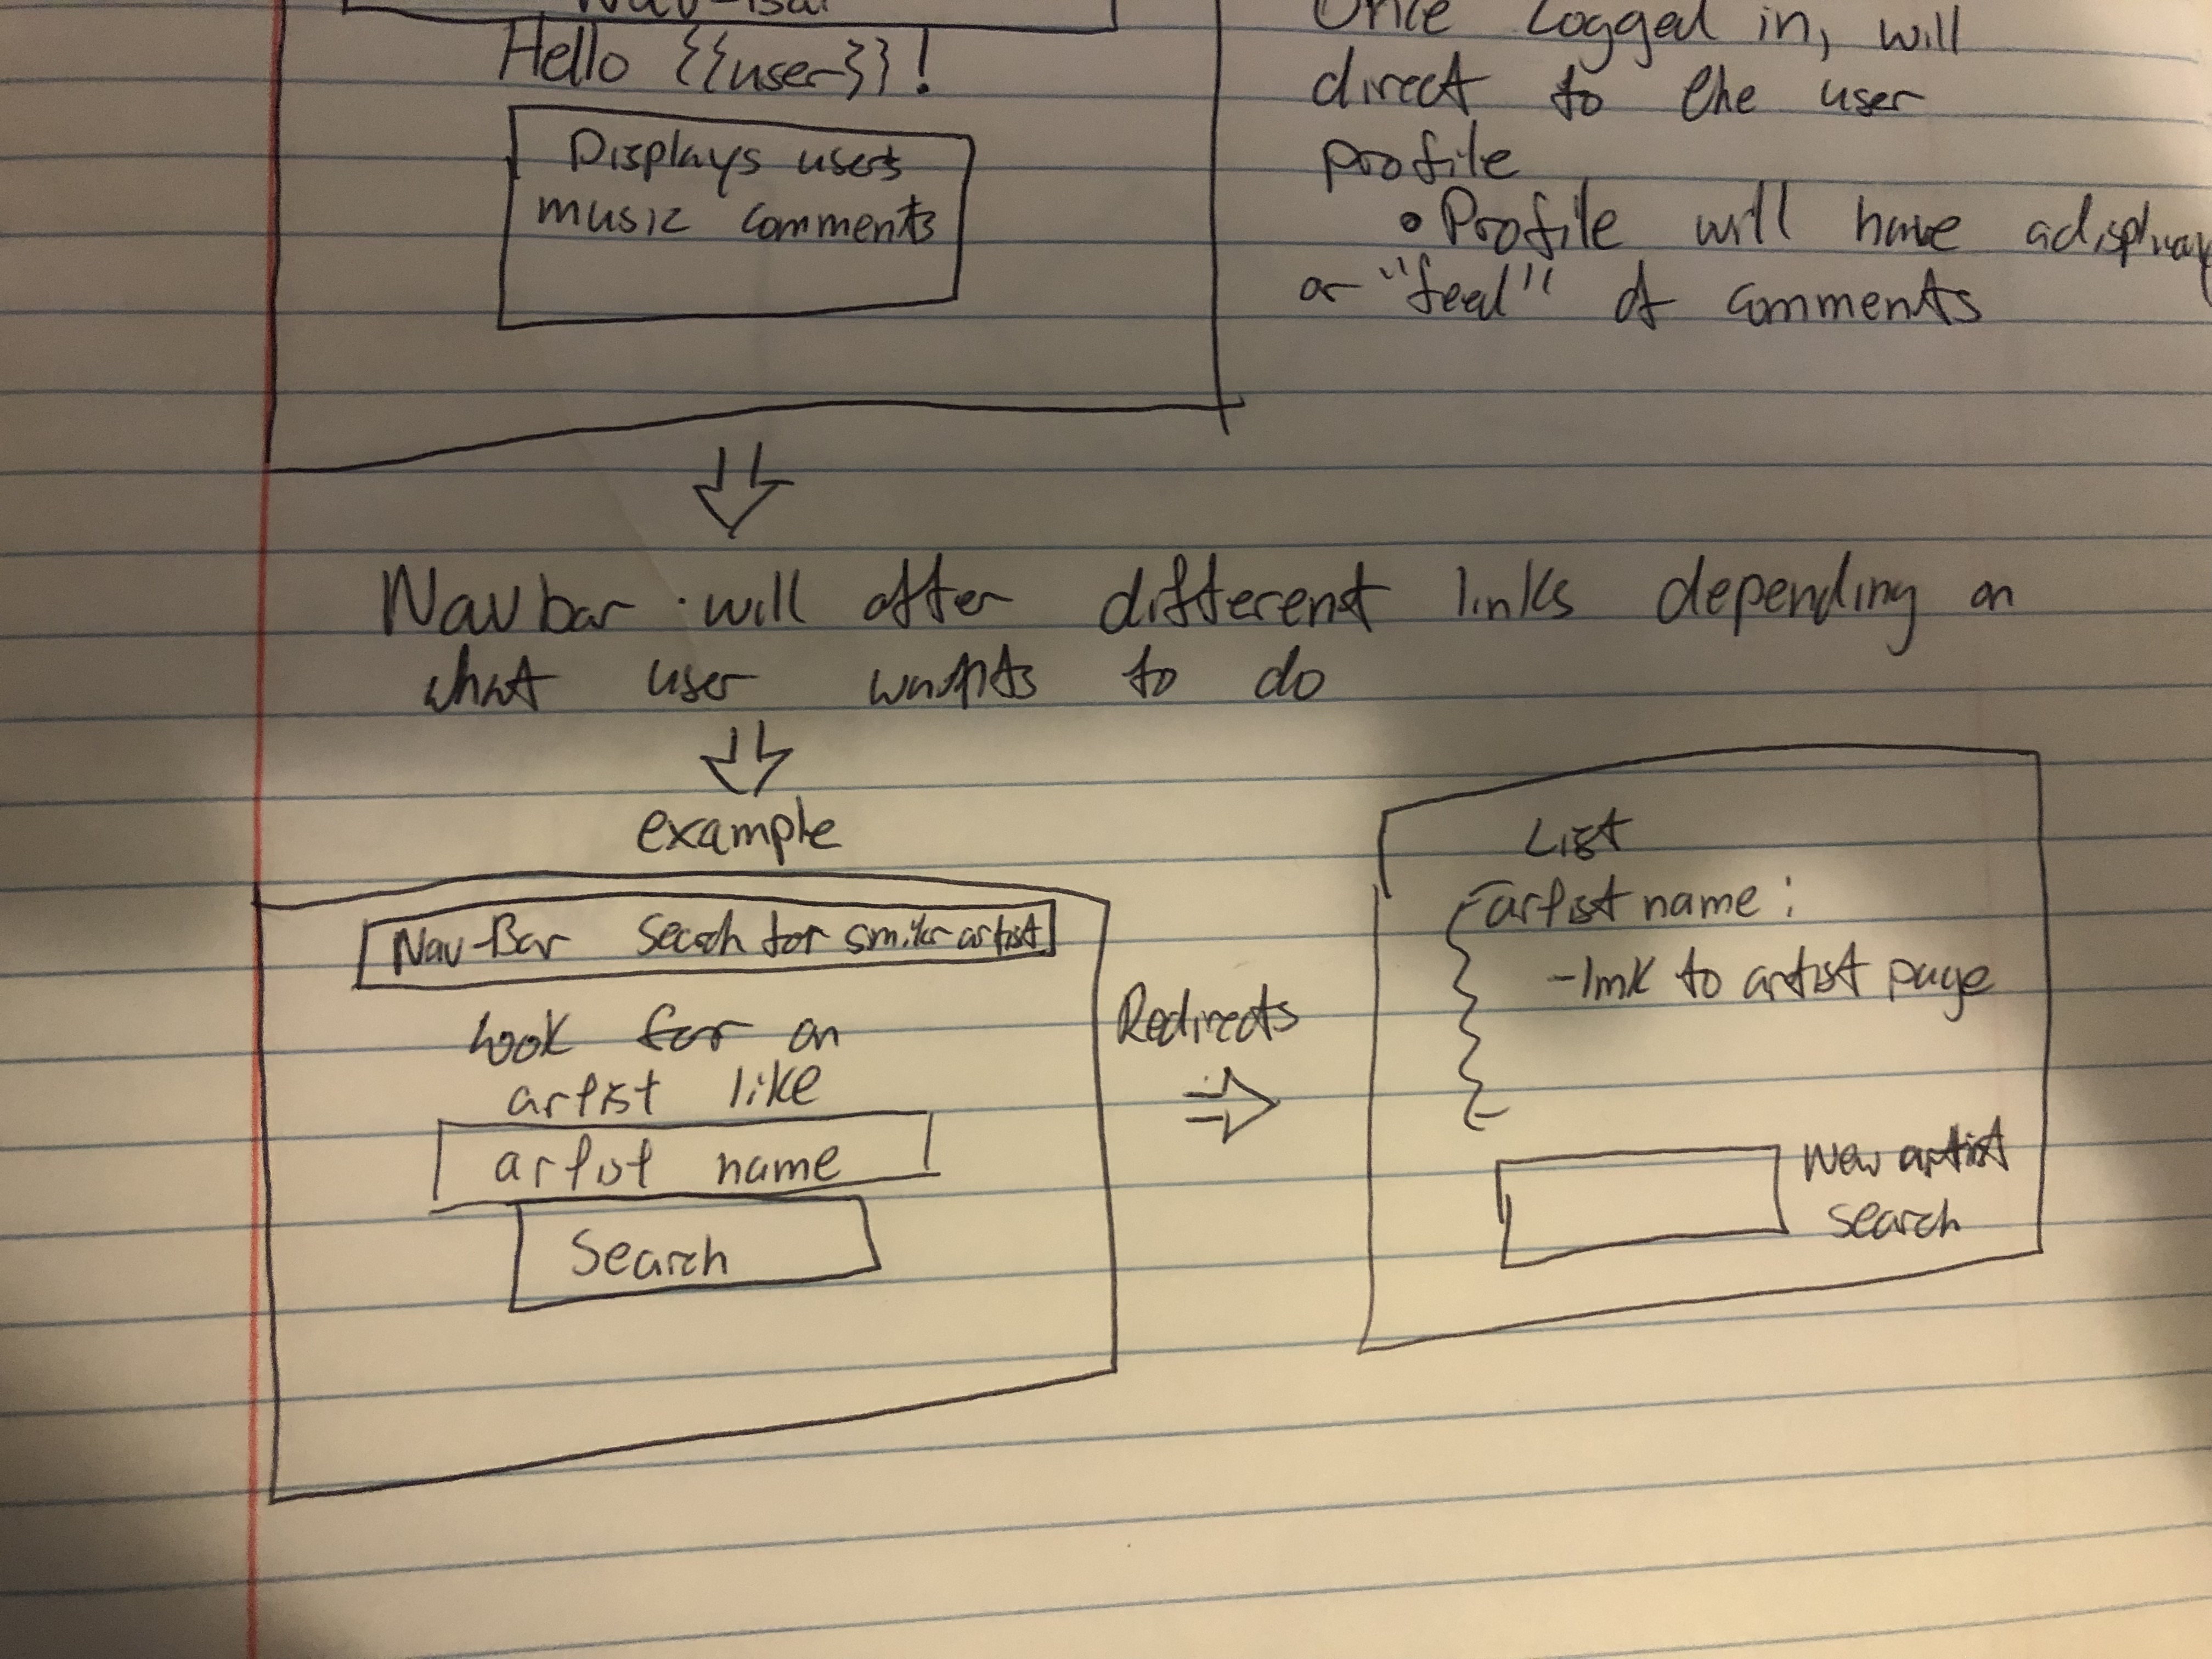 Nav-Bar
Hello {{user}}!
Displays users
music comments
Once logged in, will
direct to the user
profile
• Profile will have a display
or "feed" of comments
Nav bar will offer different links depending on
what user wants to do
example
Nav-Bar Search for similar artist
Look for an
artist like
artist name
Search
Redirects
List
artist name:
-link to artist page
New artist
search